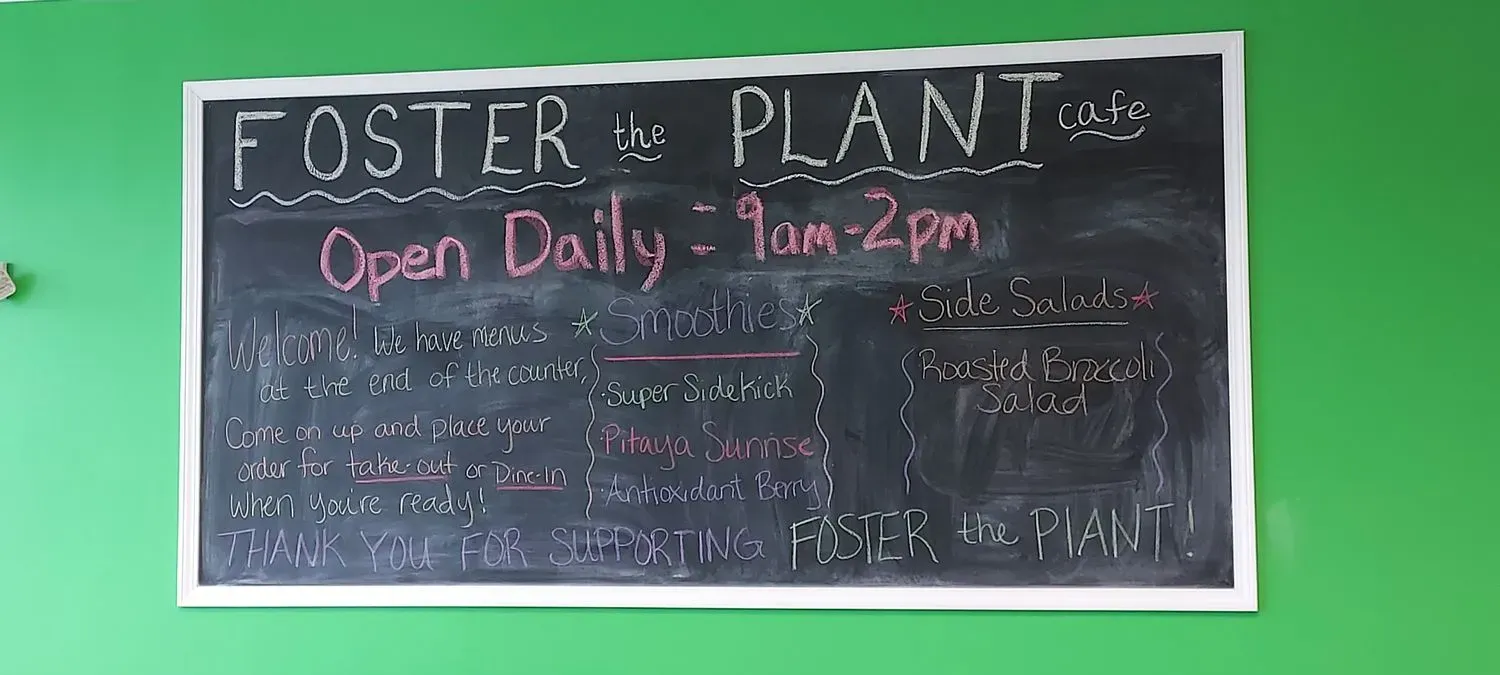 FOSTER the PLANT cafe
Open Daily : 9am-2pm
Welcome! We have menus
at the end of the counter,
Come on up and place your
order for take-out or Dine-In
when you're ready!
Smoothies
·Super Sidekick
·Pitaya Sunrise
·Antioxidant Berry
Side Salads
Roasted Broccoli
Salad
THANK YOU FOR SUPPORTING FOSTER the PLANT!